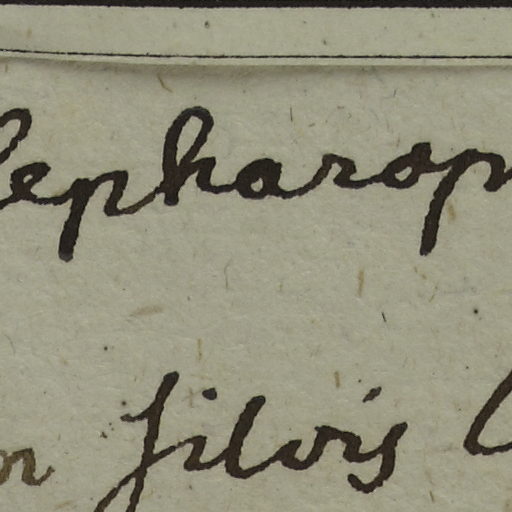 lepharop
in silvis